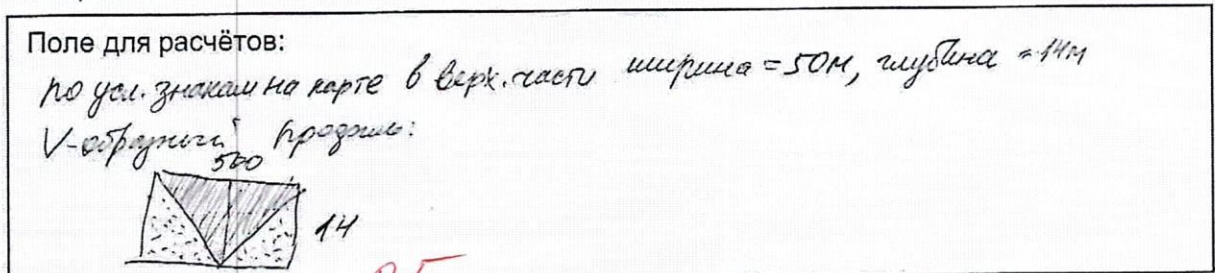 Поле для расчётов:
по усл. знакам на карте в верх. части ширина = 50м, глубина = 14м
V-образный профиль:
500
14